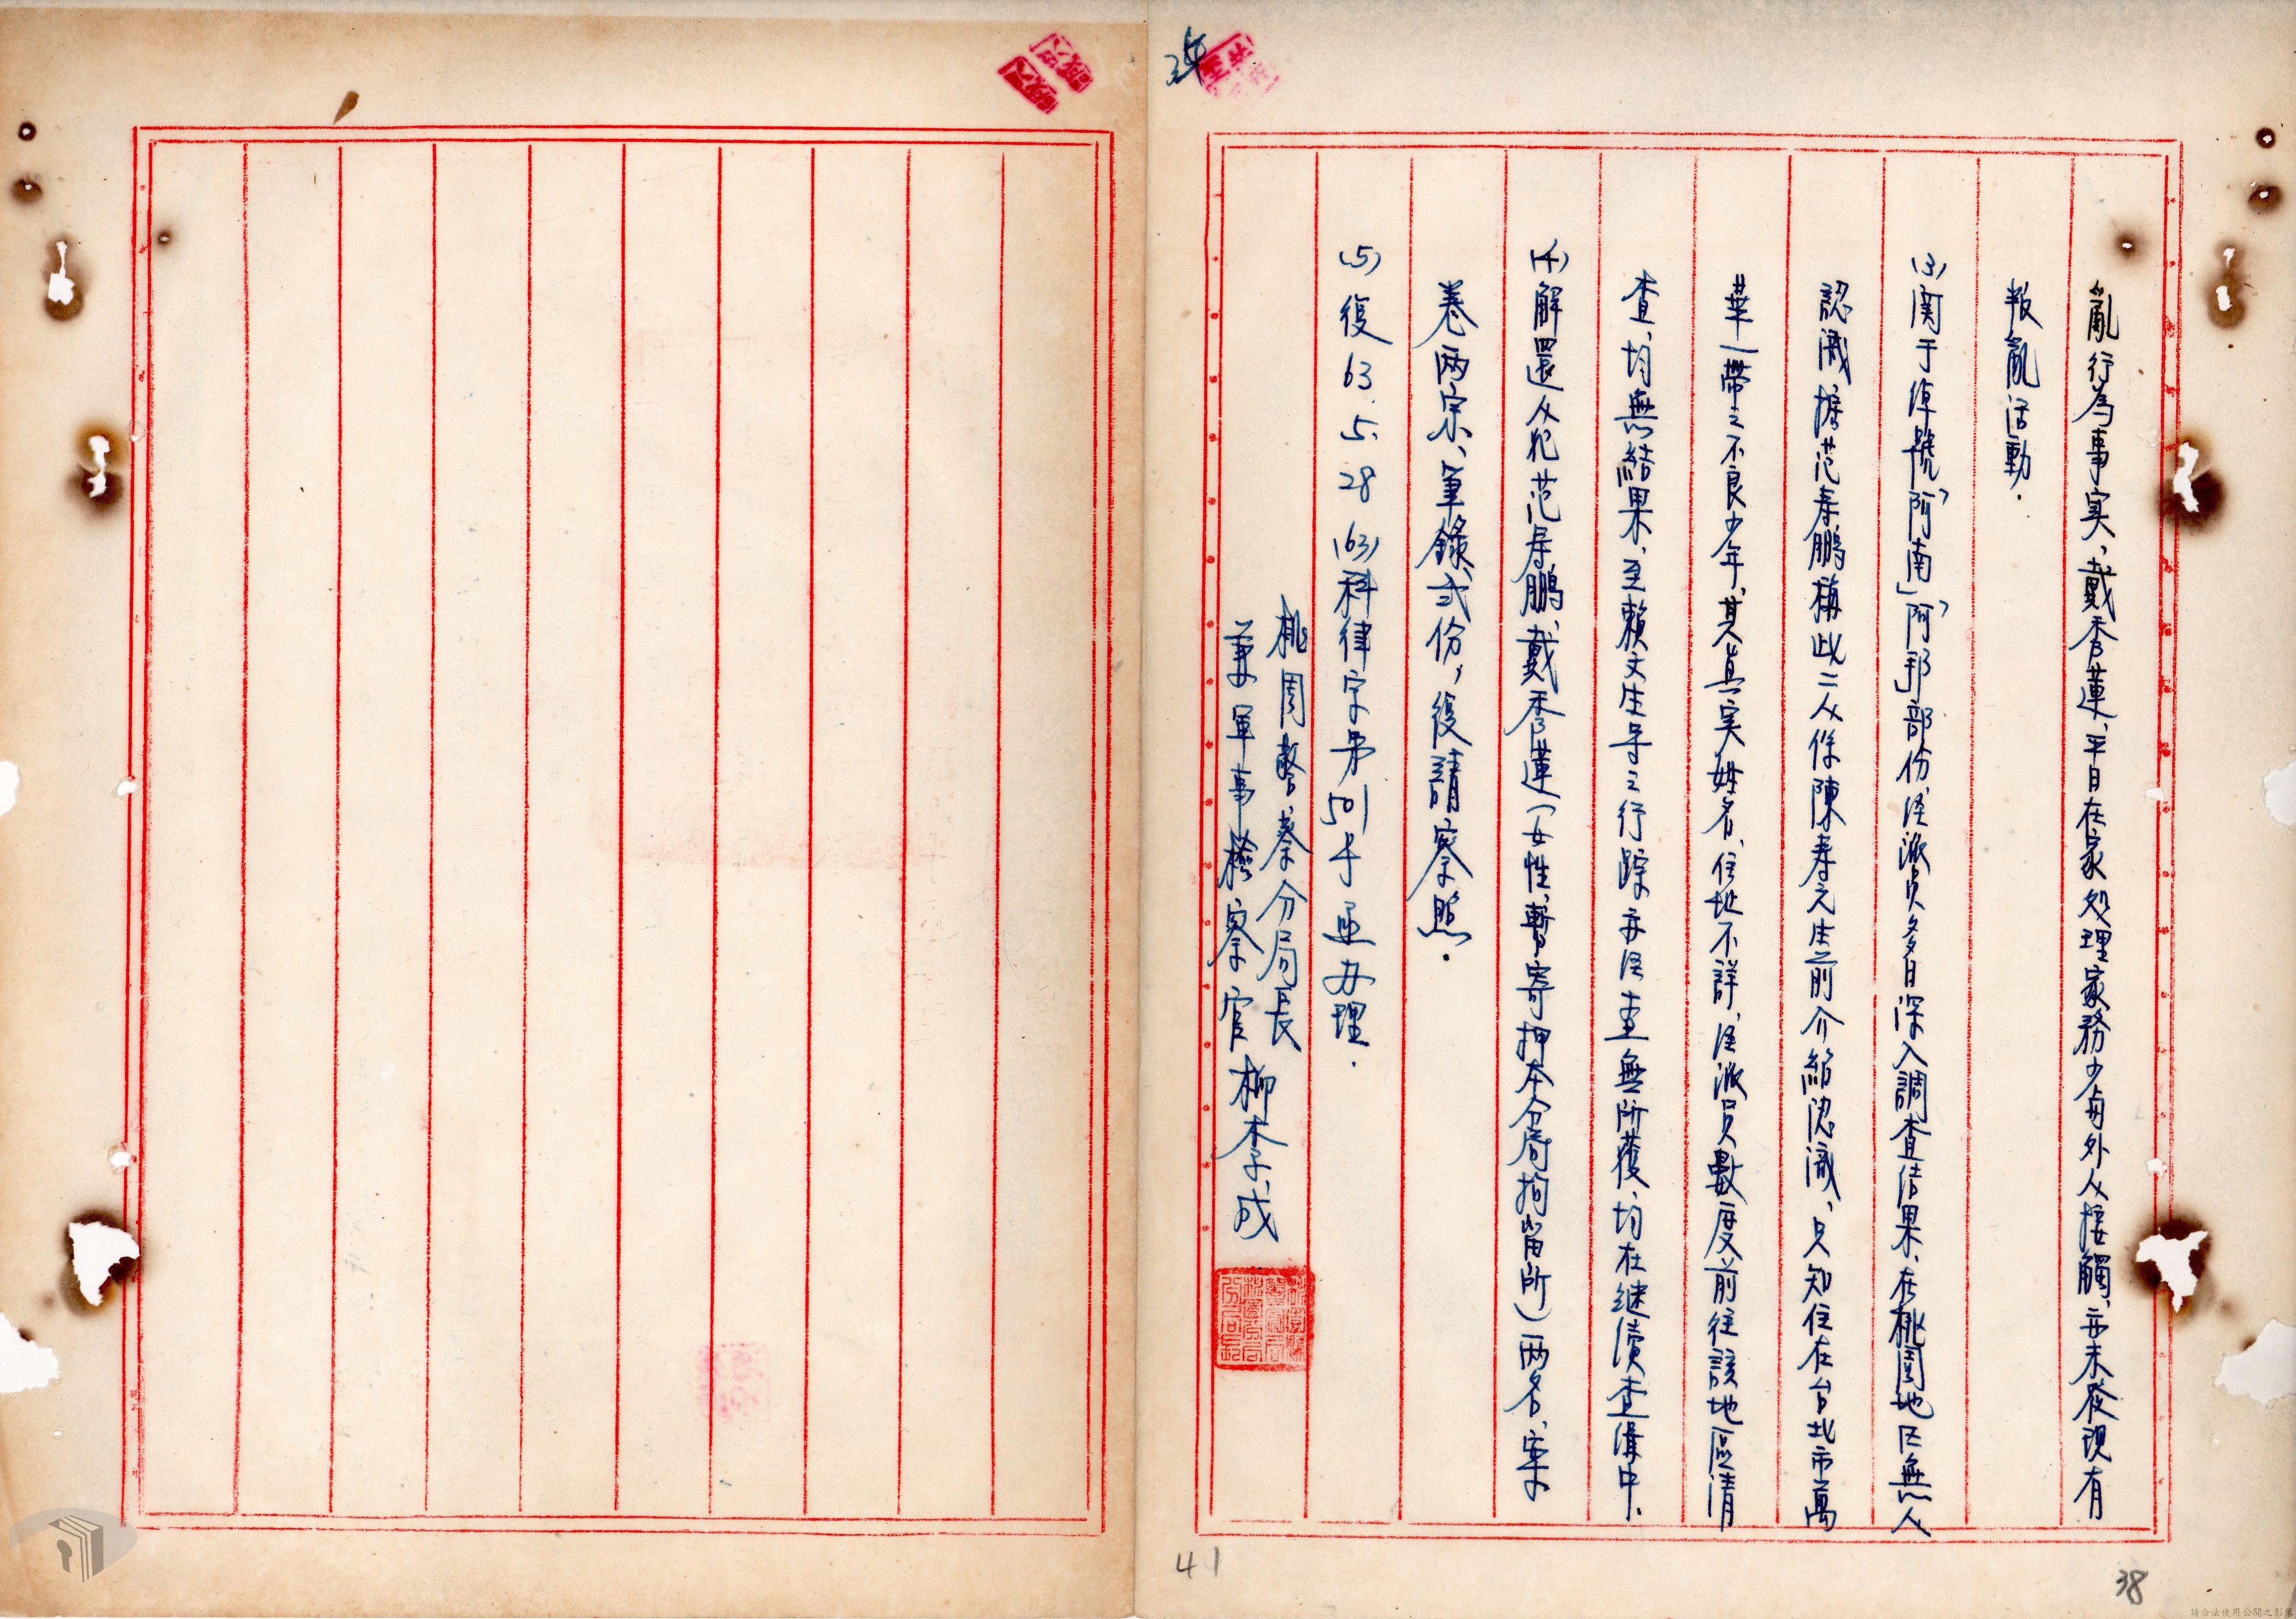 亂行為事実、戴秀蓮、平日在家処理家務少与外人接觸、亦未發現有
叛亂活動.
(3)関于綽號「阿南」「阿郎」部份、經派員多日深入調查結果、在桃園地区無人
認識、據范春鵬稱此二人係陳春元生前介紹認識、只知住在台北市萬
華一帶之不良少年、其真実姓名、住地不詳、經派員數度前往該地區清
查、均無結果、至賴文生等之行踪亦經查無所獲、均在継續查緝中.
(4)解還人犯范春鵬、戴秀蓮(女性、暫寄押本分局拘留所)両名、案
卷両宗、筆錄式份,復請察照.
(5)復63.5.28(63)科律字第501号函办理.
桃園警察分局長
兼軍事檢察官 柳李成
41
38
請合法使用公開之影像